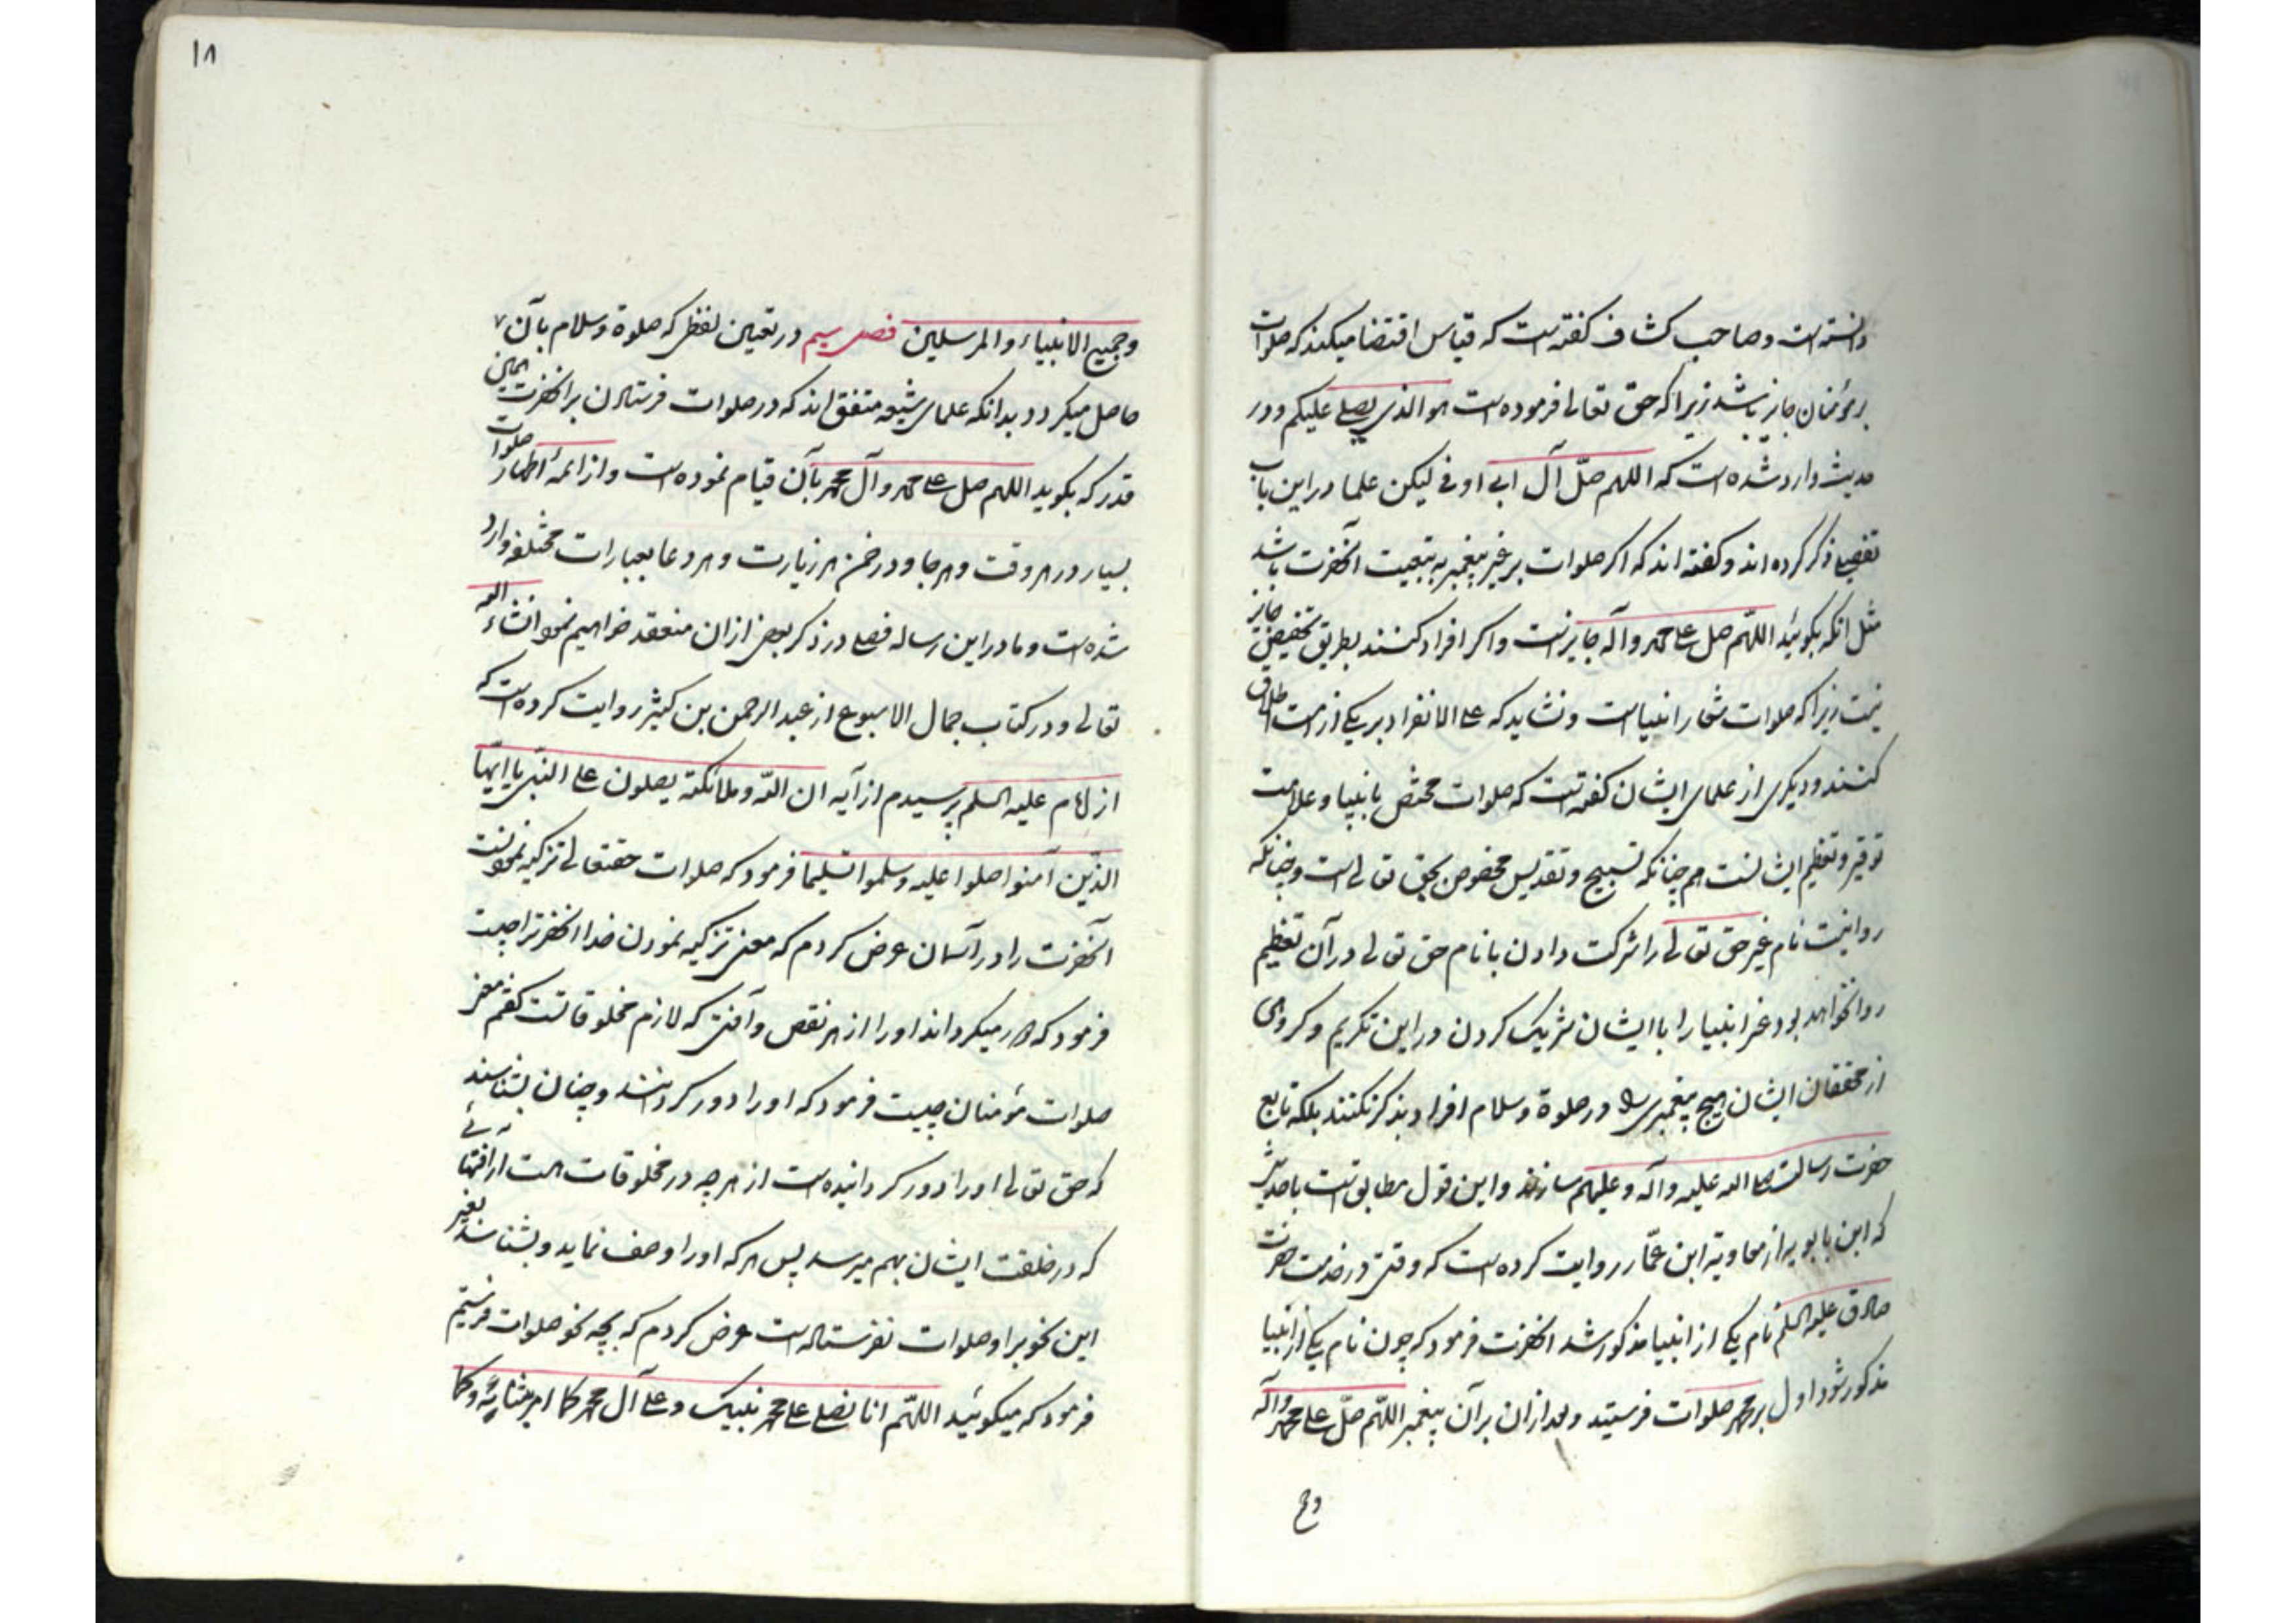 دانسته است و صاحب کشاف کفته است که قیاس اقتضا میکند که صلوات
بر مؤمنان جایز باشد زیرا که حق تعالی فرموده است هو الذی یصلی علیکم و در
حدیث وارد شده است که اللهم صلّ آل ابی اوفی لیکن علما در این باب
تفصیلی ذکر کرده اند و کفته اند که اکر صلوات بر غیر پیغمبر به تبعیت آنحضرت باشد
مثل انکه بکوئید اللهّم صل علی محمد و آله جایز است و اکر افراد کنند بطریق تخصیص جایز
نیست زیرا که صلوات شعار انبیا است و نشاید که علی الانفراد بر یکی از امت اطلاق
کنند و دیکری از علمای ایشان کفته است که صلوات مختص بانبیا و علامت
توقیر و تعظیم ایشانست هم چنانکه تسبیح و تقدیس مخصوص بحق تعالی است و چنانکه
روا نیست نام غیر حق تعالی را شرکت دادن با نام حق تعالی در آن تعظیم
روا نخواهد بود غیر انبیا را با ایشان شریک کردن در این تکریم و کروهی
از محققان ایشان هیچ پیغمبری را در صلوة و سلام افراد بذکر نکنند بلکه تابع
حضرت رسالت صلی الله علیه و آله و علیهم سازند و این قول مطابق است با حدیثی
که ابن بابویه از معاویة ابن عمّار روایت کرده است که وقتی در خدمت حضرت
صادق علیه السلم نام یکی از انبیا مذکور شد انحضرت فرمود که چون نام یکی از انبیا
مذکور شود اول بر محمد صلوات فرستید و بعد از ان بر آن پیغمبر اللهّم صلّ علی محمد و آله
وج
۱۸
و جمیع الانبیاء و المرسلین فصل سیم در تعیین لفظی که صلوة و سلام بآن
حاصل میکردد بدانکه علمای شیعه متفق اند که در صلوات فرستادن بر انحضرت همین
قدر که بکوید اللهم صل علی محمد و آل محمد بآن قیام نموده است و از ائمهٔ اطهار صلوات
بسیار در هر وقت و هر جا و در ضمن هر زیارت و هر دعا بعبارات مختلفه وارد
شده است و ما در این رساله فصلی در ذکر بعضی از ان منعقد خواهیم نمود انشاء الله
تعالی و در کتاب جمال الاسبوع از عبد الرحمن بن کثیر روایت کرده است که
از امام علیه السلم پرسیدم از آیه ان اللّه و ملائکته یصلون علی النبّی یا ایّها
الذّین آمنوا صلوا علیه و سلموا تسلیما فرمود که صلوات حقتعالی تزکیه نمودنست
آنحضرت را در آسمان عرض کردم که معنی تزکیه نمودن خدا انحضرترا چیست
فرمود که دور میکرداند او را از هر نقص و آفتی که لازم مخلوقاتست کفتم معنی
صلوات مؤمنان چیست فرمود که او را دور کردانند و چنان بشناسند
که حق تعالی او را دور کردانیده است از هر چه در مخلوقات است از آفتهائی
که در خلقت ایشان بهم میرسد پس هر که او را وصف نماید و بشناسد بغیر
این نحو بر او صلوات نفرستاده است عرض کردم که بچه نحو صلوات فرستیم
فرمود که میکوئید اللهّم انا نصلی علی محمد نبیک و علی آل محمد کما امرتنا به و کما